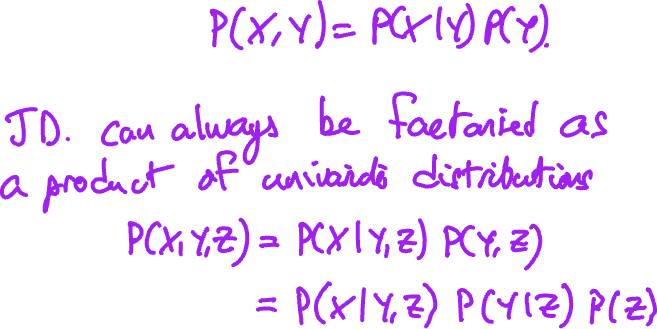 P(X,Y) = P(X|Y) P(Y).
JD. can always be factoried as
a product of univariate distributions
P(X,Y,Z) = P(X|Y,Z) P(Y,Z)
= P(X|Y,Z) P(Y|Z) P(Z)